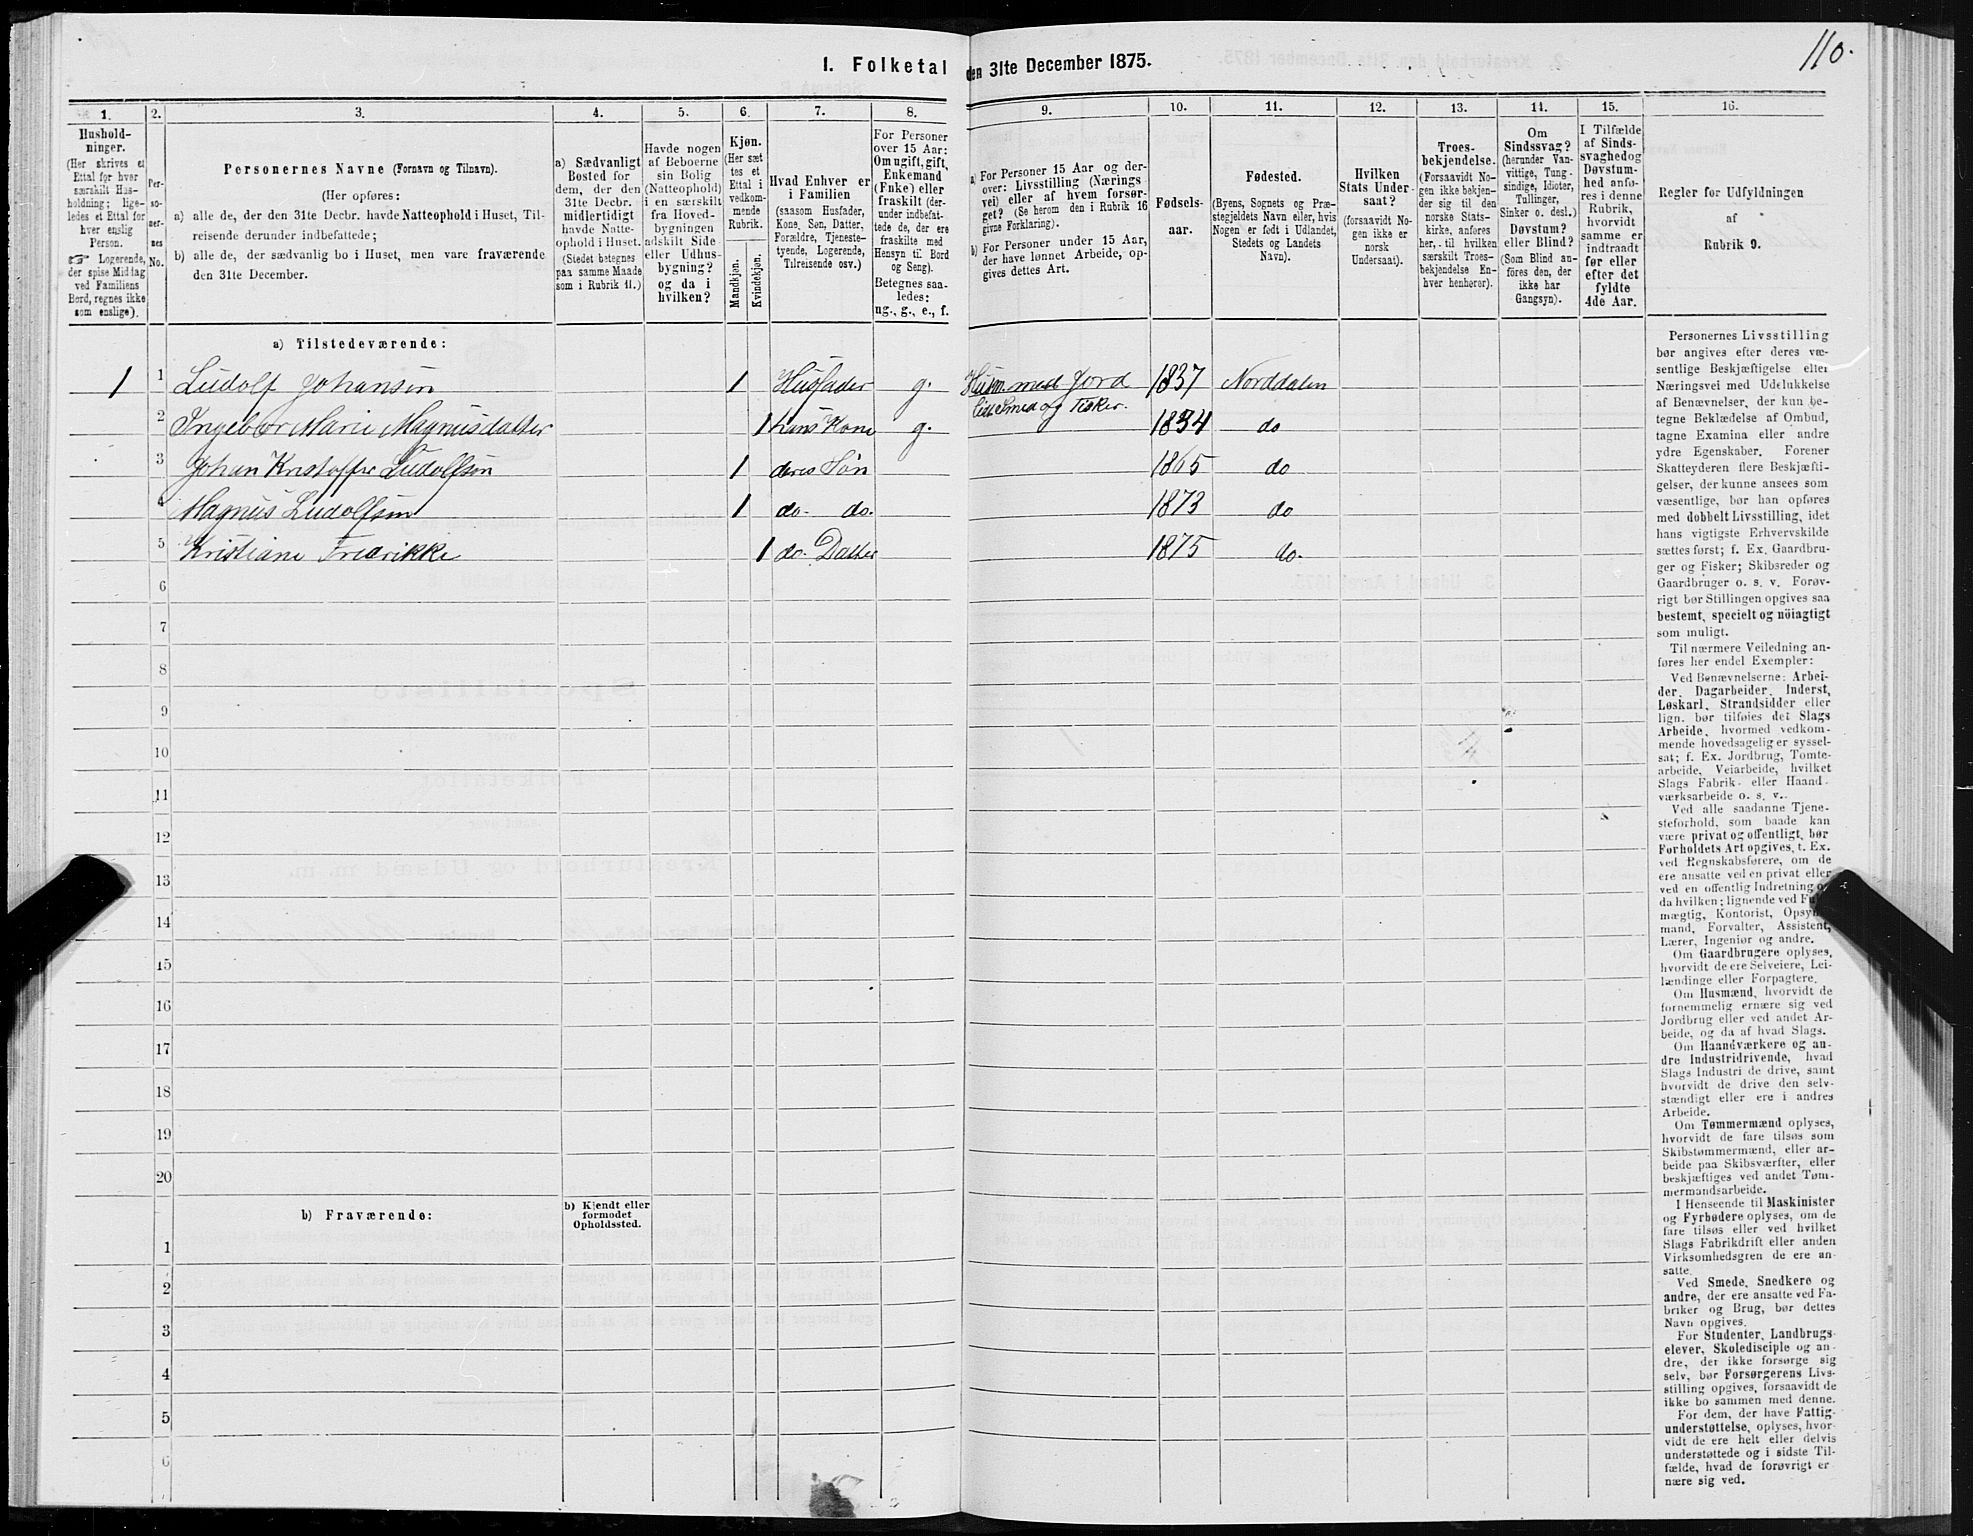 110.
1. Folketal den 31te December 1875.
1. 2. 3. 4. 5. 6. 7. 8. 9. 10. 11. 12. 13. 14. 15. 16.
Hushold-
ninger.
(Her skrives et
Ettal for hver
særskilt Hus-
holdning; lige-
ledes et Ettal for
hver enslig
Person.
☞ Logerende,
der spise Middag
ved Familiens
Bord, regnes ikke
som enslige).
Per-
so-
ner-
nes
No.
Personernes Navne (Fornavn og Tilnavn).
(Her opføres:
a) alle de, der den 31te Decbr. havde Natteophold i Huset, Til-
reisende derunder indbefattede;
b) alle de, der sædvanlig bo i Huset, men vare fraværende
den 31te December.
a) Sædvanligt
Bosted for
dem, der den
31te Decbr.
midlertidigt
havde Natte-
ophold i Huset.
(Stedet betegnes
paa samme Maade
som i Rubrik 11.)
Havde nogen
af Beboerne
sin Bolig
(Natteophold)
i en særskilt
fra Hoved-
bygningen
adskilt Side
eller Udhus-
bygning?
og da i
hvilken?
Kjøn.
(Her sæt
tes et
Ettal i
vedkom-
mende
Rubrik.
Mandkjøn.
Kvindekjøn.
Hvad Enhver er
i Familien
(saasom Husfader,
Kone, Søn, Datter,
Forældre, Tjeneste-
tyende, Logerende,
Tilreisende osv.)
For Personer
over 15 Aar:
Om ugift, gift,
Enkemand
(Enke) eller
fraskilt (der-
under indbefat-
tede de, der ere
fraskilte med
Hensyn til Bord
og Seng).
Betegnes saa-
ledes:
ug., g., e., f.
a) For Personer 15 Aar og der-
over: Livsstilling (Nærings-
vei) eller af hvem forsør-
get? (Se herom den i Rubrik 16
givne Forklaring).
b) For Personer under 15 Aar,
der have lønnet Arbeide, op-
gives dettes Art.
Fødsels-
aar.
Fødested.
(Byens, Sognets og Præ-
stegjeldets Navn eller, hvis
Nogen er født i Udlandet,
Stedets og Landets
Navn).
Hvilken
Stats Under-
saat?
(forsaavidt No-
gen ikke er
norsk
Undersaat).
Troes-
bekjendelse.
(Forsaavidt No-
gen ikke bekjen-
der sig til den
norske Stats-
kirke, anføres
her, til hvilken
særskilt Troes-
bekjendelse En-
hver henhører).
Om
Sindssvag?
(herunder Van-
vittige, Tung-
sindige, Idioter,
Tullinger,
Sinker o. desl.)
Døvstum?
eller Blind?
(Som Blind an-
føres den, der
ikke har
Gangsyn).
I Tilfælde
af Sinds-
svaghed og
Døvstum-
hed anfø-
res i denne
Rubrik,
hvorvidt
samme er
indtraadt
før eller
efter det
fyldte
4de Aar.
Regler for Udfyldningen
af
Rubrik 9.
a) Tilstedeværende:
1 1 Ludolf Johansen 1 Husfader g. Husm. med Jord 1837 Norddalen
Smed og Fisker.
2 Ingebor Marie Magnusdatter 1 hans Kone g. 1834 do
3 Johan Kristoffer Ludolfsen 1 deres Søn 1865 do
4 Magnus Ludolfsen 1 do. do. 1873 do
5 Kristiane Fredrikke 1 do. Datter 1875 do.
6
7
8
9
10
11
12
13
14
15
16
17
18
19
20
b) Fraværende:
b) Kjendt eller
formodet
Opholdssted.
1
2
3
4
5
6
Personernes Livsstilling
bør angives efter deres væ-
sentlige Beskjæftigelse eller
Næringsvei med Udelukkelse
af Benævnelser, der kun be-
tegne Beklædelse af Ombud,
tagne Examina eller andre
ydre Egenskaber. Forener
Skatteyderen flere Beskjæfti-
gelser, der kunne ansees som
væsentlige, bør han opføres
med dobbelt Livsstilling, idet
hans vigtigste Erhvervskilde
sættes først; f. Ex. Gaardbru-
ger og Fisker; Skibsreder og
Gaardbruger o. s. v. Forøv-
rigt bør Stillingen opgives saa
bestemt, specielt og nöiagtigt
som muligt.
Til nærmere Veiledning an-
føres her endel Exempler:
Ved Benævnelserne: Arbei-
der, Dagarbeider, Inderst,
Løskarl, Strandsidder eller
lign. bør tilføies det Slags
Arbeide, hvormed vedkom-
mende hovedsagelig er syssel-
sat; f. Ex. Jordbrug, Tomte-
arbeide, Veiarbeide, hvilket
Slags Fabrik- eller Haand-
værksarbeide o. s. v.
Ved alle saadanne Tjene-
steforhold, som baade kan
være privat og offentligt, bør
Forholdets Art opgives, t. Ex.
ved Regnskabsførere, om de
ere ansatte ved en privat eller
ved en offentlig Indretning
da hvilken; lignende ved
mægtig, Kontorist,
mand, Forvalter, Assistent,
Lærer, Ingeniør og andre.
Om Gaardbrugere oplyses,
hvorvidt de ere Selveiere, Lei-
lændinge eller Forpagtere.
Om Husmænd, hvorvidt de
fornemmelig ernære sig ved
Jordbrug eller ved andet Ar-
beide, og da af hvad Slags.
Om Haandværkere og an-
dre Industridrivende, hvad
Slags Industri de drive, samt
hvorvidt de drive den selv-
stændigt eller ere i andres
Arbeide.
Om Tømmermænd oplyses,
hvorvidt de fare tilsøs som
Skibstømmermænd, eller ar-
beide paa Skibsværfter, eller
beskjæftiges ved andet Tøm-
mermandsarbeide.
I Henseende til Maskinister
og Fyrbødere oplyses, om de
fare tilsøs eller ved hvilket
Slags Fabrikdrift eller anden
Virksomhedsgren de ere an-
satte.
Ved Smede, Snedkere og
andre, der ere ansatte ved Fa-
briker og Brug, bør dettes
Navn opgives.
For Studenter, Landbrugs-
elever, Skoledisciple og an-
dre, der ikke forsørge sig
selv, bør Forsørgerens Livs-
stilling opgives, forsaavidt de
ikke bo sammen med denne.
For dem, der have Fattig-
understøttelse, oplyses, hvor-
vidt de ere helt eller delvis
understøttede og i sidste Til-
fælde, hvad de forøvrigt er-
nære sig ved.